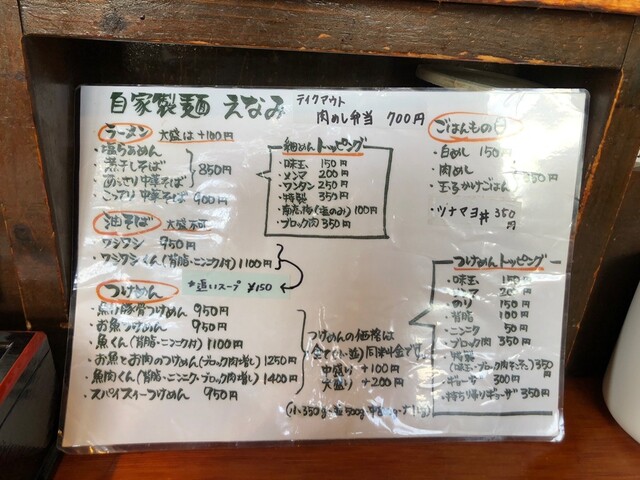 自家製麺 えなみ
テイクアウト
肉めし弁当 700円
ラーメン 大盛は+100円
・塩らぁめん
・煮干しそば
・あっさり中華そば
850円
・こってり中華そば 900円
油そば 大盛不可
・ワシワシ 950円
・ワシワシくん(背脂・ニンニク付) 1100円
追いスープ ¥150
つけめん
・魚介豚骨つけめん 950円
・お魚つけめん 950円
・魚くん(背脂・ニンニク付) 1100円
・お魚とお肉のつけめん(ブロック肉増し) 1250円
・魚肉くん(背脂・ニンニク・ブロック肉増し) 1400円
・スパイスィーつけめん 950円
つけめんの価格は
全て(小・並)同料金です
中盛り +100円
大盛り +200円
細めん トッピング
・味玉 150円
・メンマ 200円
・ワンタン 250円
・特製 350円
・南高梅(塩のみ) 100円
・ブロック肉 350円
ごはんもの
・白めし 150円
・肉めし
・玉子かけごはん
350円
・ツナマヨ丼 350円
つけめん トッピング
・味玉 150円
・メンマ 200円
・のり 150円
・背脂 100円
・ニンニク 50円
・ブロック肉 350円
・特製
350円
・ギョーザ 300円
・持ち帰りギョーザ 350円